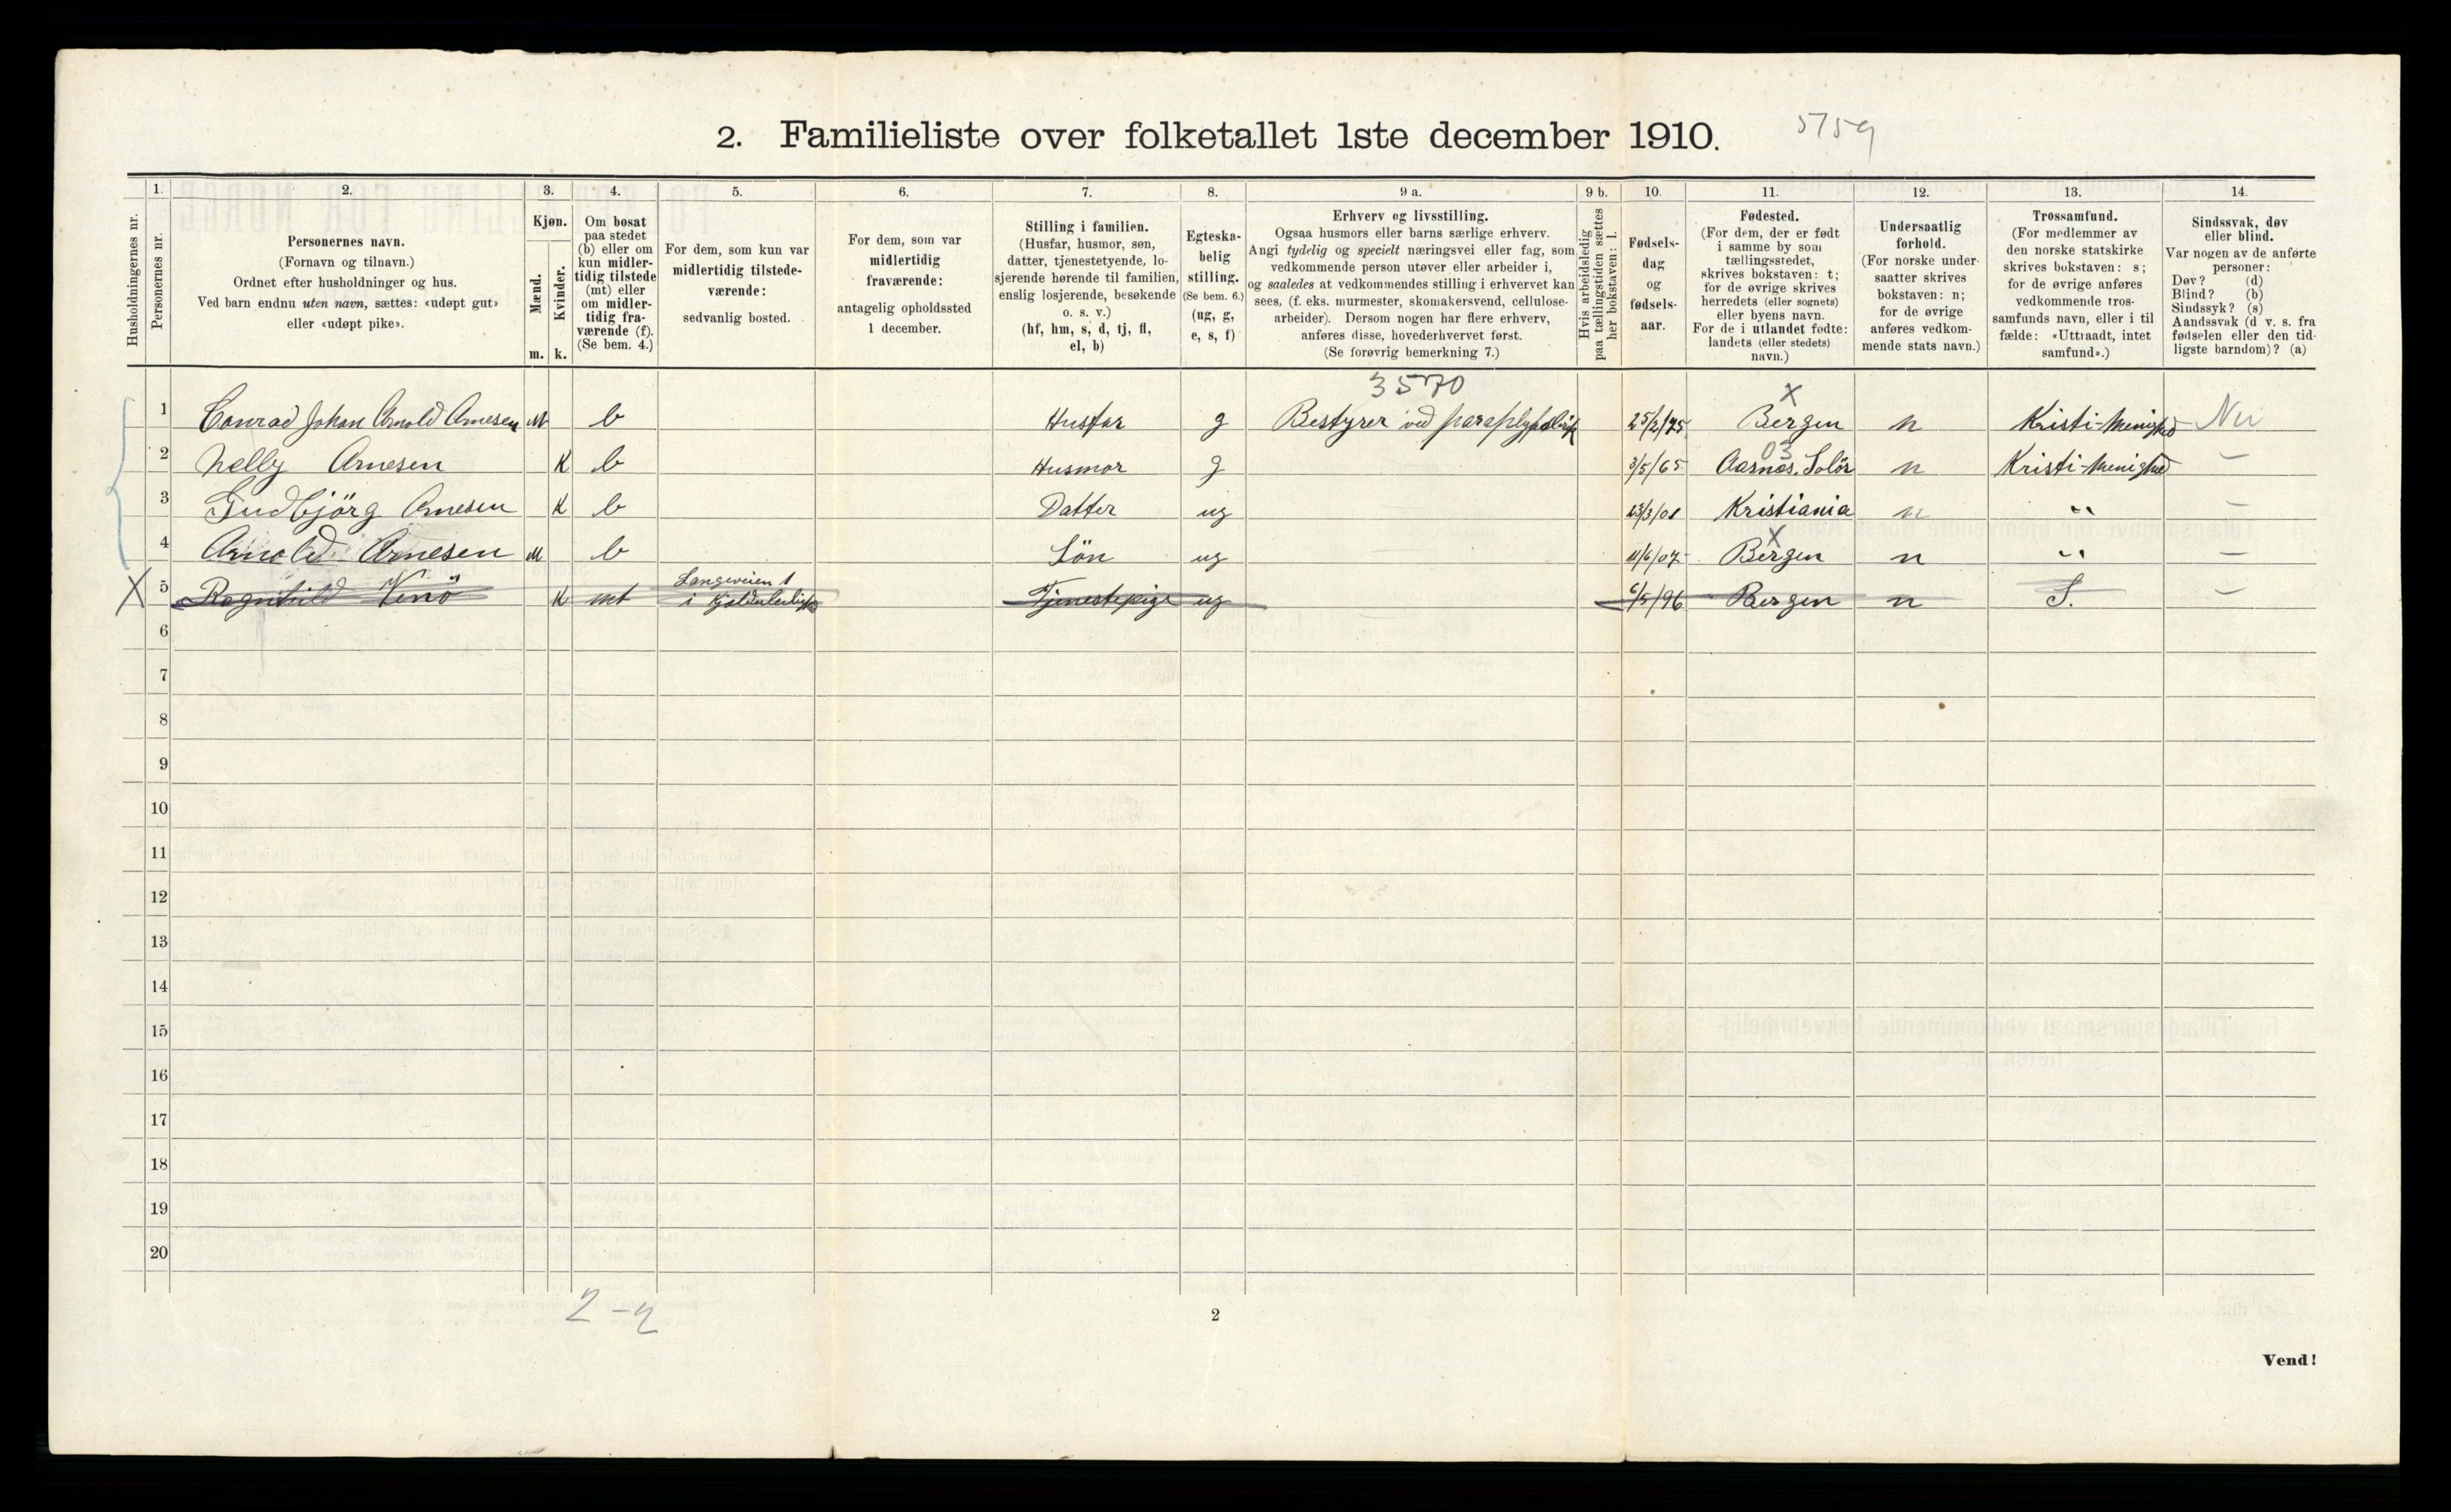 2. Familieliste over folketallet 1ste december 1910. 5759
1. 2. 3. 4. 5. 6. 7. 8. 9 a. 9 b. 10. 11. 12. 13. 14.
Husholdningernes nr.
Personernes nr.
Personernes navn.
(Fornavn og tilnavn.)
Ordnet efter husholdninger og hus.
Ved barn endnu uten navn, sættes: «udøpt gut»
eller «udøpt pike».
Kjøn.
Mænd.
m.
Kvinder.
k.
Om bosat
paa stedet
(b) eller om
kun midler-
tidig tilstede
(mt) eller
om midler-
tidig fra-
værende (f).
(Se bem. 4.)
For dem, som kun var
midlertidig tilstede-
værende:
sedvanlig bosted.
For dem, som var
midlertidig
fraværende:
antagelig opholdssted
1 december.
Stilling i familien.
(Husfar, husmor, søn,
datter, tjenestetyende, lo-
sjerende hørende til familien,
enslig losjerende, besøkende
o. s. v.)
(hf, hm, s, d, tj, fl,
el, b)
Egteska-
belig
stilling.
(Se bem. 6.)
(ug, g,
e, s, f)
Erhverv og livsstilling.
Ogsaa husmors eller barns særlige erhverv.
Angi tydelig og specielt næringsvei eller fag, som
vedkommende person utøver eller arbeider i,
og saaledes at vedkommendes stilling i erhvervet kan
sees, (f. eks. murmester, skomakersvend, cellulose-
arbeider). Dersom nogen har flere erhverv,
anføres disse, hovederhvervet først.
(Se forøvrig bemerkning 7.)
Hvis arbeidsledig
paa tællingstiden sættes
her bokstaven: l.
Fødsels-
dag
og
fødsels-
aar.
Fødested.
(For dem, der er født
i samme by som
tællingsstedet,
skrives bokstaven: t;
for de øvrige skrives
herredets (eller sognets)
eller byens navn.
For de i utlandet fødte:
landets (eller stedets)
navn.)
Undersaatlig
forhold.
(For norske under-
saatter skrives
bokstaven: n;
for de øvrige
anføres vedkom-
mende stats navn.)
Trossamfund.
(For medlemmer av
den norske statskirke
skrives bokstaven: s;
for de øvrige anføres
vedkommende tros-
samfunds navn, eller i til
fælde: «Uttraadt, intet
samfund».)
Sindssvak, døv
eller blind.
Var nogen av de anførte
personer:
Døv? (d)
Blind? (b)
Sindssyk? (s)
Aandssvak (d v. s. fra
fødselen eller den tid-
ligste barndom)? (a)
3570 X
1 Conrad Johan Arnold Arnesen M b Husfar g Bestyrer ved paraplyfabrik 25/2/75 Bergen n Kristi-Menighed
03
2 Nelly Arnesen K b Husmor g 3/5/65 Aasnes. Solör n Kristi-Menighed —
3 Gudbjörg Arnesen K b Datter ug 23/3/01 Kristiania n " —
X
4 Arnold Arnesen M b Sön ug 11/6/07 Bergen n " —
Langeveien 1
X 5 Ragnhild K mt i Tjenestepige ug 6/5/96 Bergen n S. —
6
7
8
9
10
11
12
13
14
15
16
17
18
19
20
2 - 2
2
Vend!